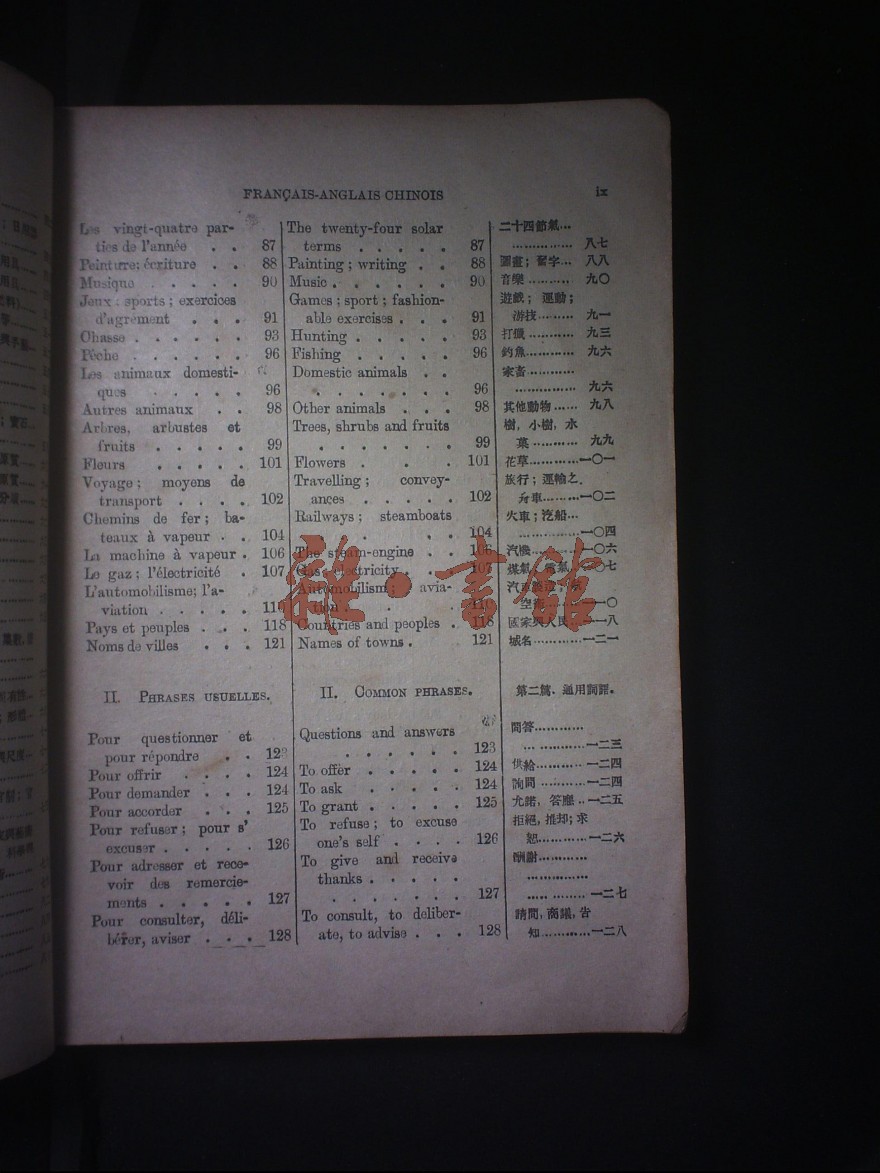 FRANÇAIS-ANGLAIS CHINOIS
ix
Les vingt-quatre par-
ties de l'année . . 87
Peinture; écriture . . 88
Musique . . . . . 90
Jeux; sports; exercices
d'agrément . . . 91
Chasse . . . . . . 93
Pêche . . . . . . 96
Les animaux domesti-
ques . . . . . 96
Autres animaux . . 98
Arbres, arbustes et
fruits . . . . . 99
Fleurs . . . . . 101
Voyage; moyens de
transport . . . . 102
Chemins de fer; ba-
teaux à vapeur . . 104
La machine à vapeur . 106
Le gaz; l'électricité . 107
L'automobilisme; l'a-
viation . . . . .
Pays et peuples . . . 118
Noms de villes . . . 121
II. PHRASES USUELLES.
Pour questionner et
pour répondre . . 123
Pour offrir . . . . 124
Pour demander . . . 124
Pour accorder . . . 125
Pour refuser; pour s'
excuser . . . . . 126
Pour adresser et rece-
voir des remercie-
ments . . . . . 127
Pour consulter, déli-
bérer, aviser . . . 128
The twenty-four solar
terms . . . . . 87
Painting; writing . . 88
Music . . . . . . 90
Games; sport; fashion-
able exercises . . . 91
Hunting . . . . . 93
Fishing . . . . . 96
Domestic animals . .
. . . . . . . 96
Other animals . . . 98
Trees, shrubs and fruits
. . . . . . . 99
Flowers . . . 101
Travelling; convey-
ances . . . . . 102
Railways; steamboats
. . . 104
The steam-engine . . 106
Gas; electricity . . 107
Automobilism; avia-
tion
Countries and peoples . 118
Names of towns . 121
II. COMMON PHRASES.
Questions and answers
. . . . . . 123
To offer . . . . . 124
To ask . . . . . 124
To grant . . . . . 125
To refuse; to excuse
one's self . . . . 126
To give and receive
thanks . . . . .
. . . . . . . 127
To consult, to deliber-
ate, to advise . . . 128
二十四節氣…
…………… 八七
圖畫；寫字… 八八
音樂……… 九〇
遊戲；運動；
游技……… 九一
打獵……… 九三
釣魚……… 九六
家畜………
…………… 九六
其他動物…… 九八
樹，小樹，水
菓……… 九九
花草………一〇一
旅行；運輸之
舟車………一〇二
火車；汽船…
………一〇四
汽機………一〇六
煤氣；電氣…一〇七
空
國家與人民…一一八
城名………一二一
第二篇、通用詞語。
問答…………
… …………一二三
供給………一二四
詢問………一二四
允諾，答應‥一二五
拒絕，推却；求
恕………一二六
酬謝…………
……………
…………一二七
請問，商議，告
知…………一二八
雜·書館